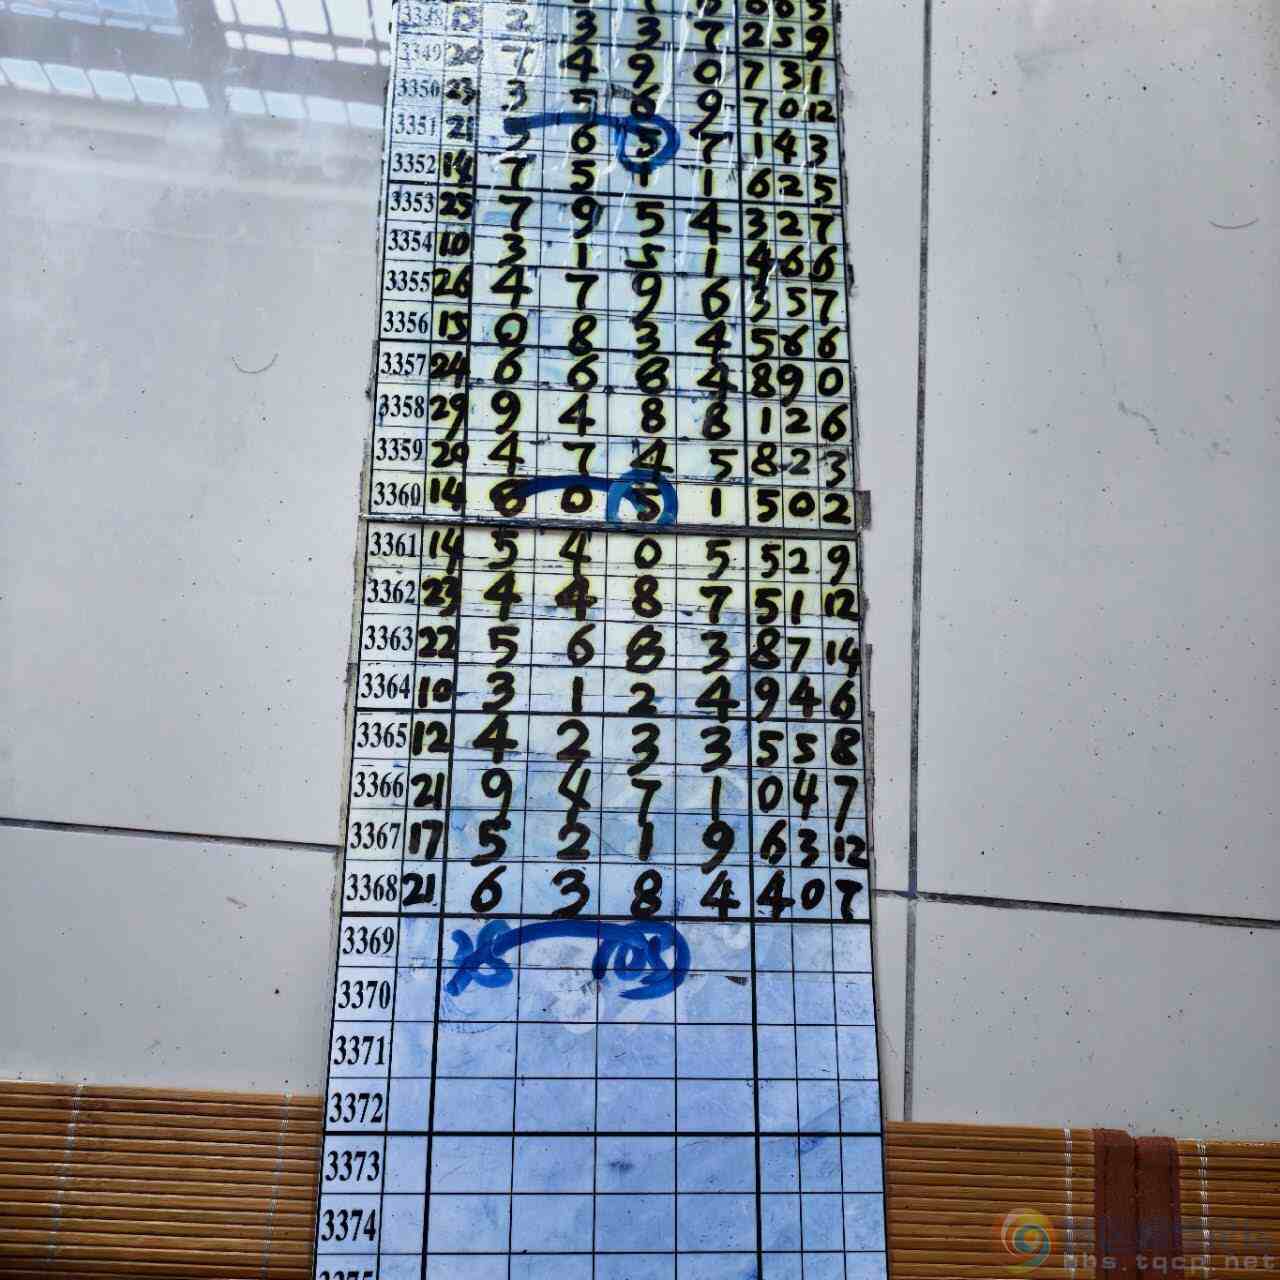 3348 15 2 3 3 7 2 5 9
3349 20 7 4 9 0 7 3 1
3350 23 3 5 6 9 7 0 12
3351 21 3 6 5 7 1 4 3
3352 14 7 5 1 1 6 2 5
3353 25 7 9 5 4 3 2 7
3354 10 3 1 5 1 4 6 6
3355 26 4 7 9 6 3 5 7
3356 15 0 8 3 4 5 6 6
3357 24 6 6 8 4 8 9 0
3358 29 9 4 8 8 1 2 6
3359 20 4 7 4 5 8 2 3
3360 14 8 0 5 1 5 0 2
3361 14 5 4 0 5 5 2 9
3362 23 4 4 8 7 5 1 12
3363 22 5 6 8 3 8 7 14
3364 10 3 1 2 4 9 4 6
3365 12 4 2 3 3 5 5 8
3366 21 9 4 7 1 0 4 7
3367 17 5 2 1 9 6 3 12
3368 21 6 3 8 4 4 0 7
3369
3370
3371
3372
3373
3374
3375
bbs.tqcp.net